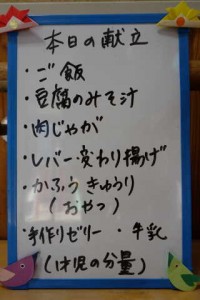 本日の献立
・ご飯
・豆腐のみそ汁
・肉じゃが
・レバー変わり揚げ
・かふう きゅうり
(おやつ)
・手作りゼリー ・牛乳
(1才児の分量)